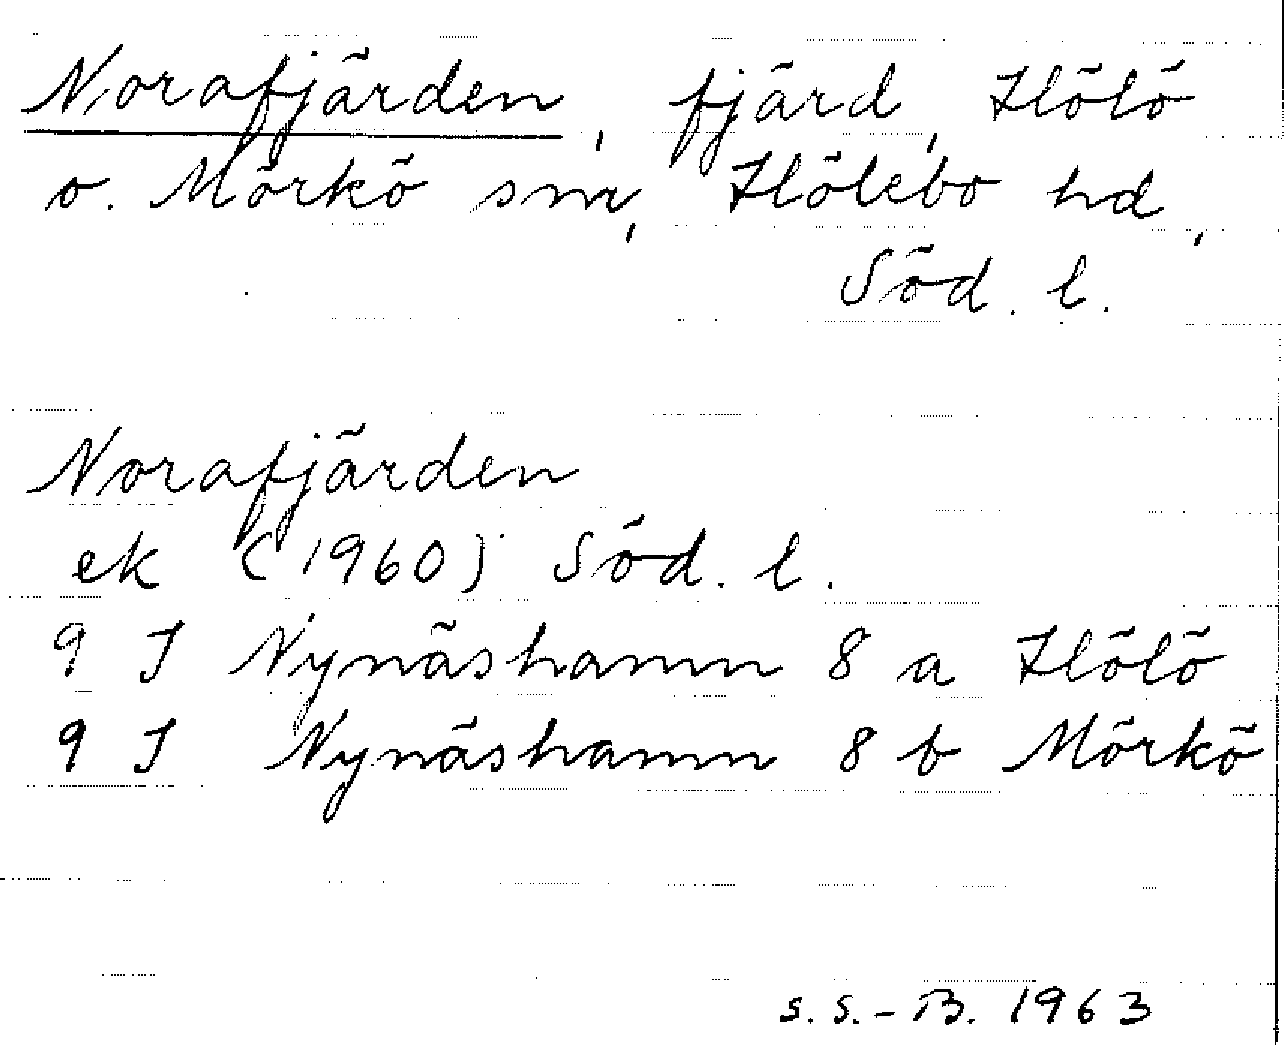 Norafjärden, fjärd, Hölö
o. Mörkö snr, Hölebo hd,
Söd. l.
Norafjärden
ek (1960) Söd. l.
9 I Nynäshamn 8 a Hölö
9 I Nynäshamn 8 b Mörkö
S. S.-B. 1963